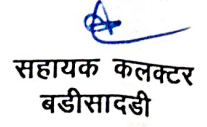 सहायक कलक्टर
बडीसादडी